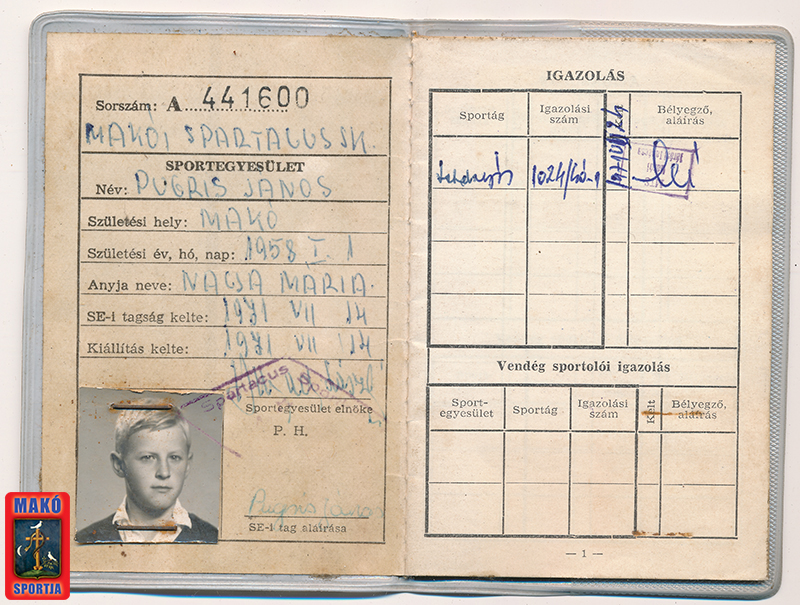 Sorszám: A 441600
MAKÓI SPARTACUS SK.
SPORTEGYESÜLET
Név: PUGRIS JÁNOS
Születési hely: MAKÓ
Születési év, hó, nap: 1958 I. 1
Anyja neve: MÁRIA
SE-i tagság kelte: 1971 VII 14
Kiállítás kelte: 1971 VII 14
Spartacus
Sportegyesület elnöke
P. H.
Pugris János
SE-i tag aláírása
MAKÓ
SPORTJA
IGAZOLÁS
Sportág
Igazolási
szám
Bélyegző,
aláírás
Vendég sportolói igazolás
Sport-
egyesület
Sportág
Igazolási
szám
Kelt
Bélyegző,
aláírás
— 1 —